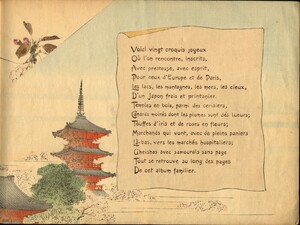 Voici vingt croquis joyeux
Où l'on rencontre, inscrits,
Avec prestesse, avec esprit,
Pour ceux d'Europe et de Paris,
Les lacs, les montagnes, les mers, les cieux,
D'un Japon frais et printanier.
Temples en bois, parmi des cerisiers,
Canards mandarins dont les plumes sont des lueurs;
Touffes d'iris et de roses en fleurs;
Marchands qui vont, avec de pleins paniers
Là-bas, vers les marchés hospitaliers;
Gheishas avec samouraïs sans page
Tout se retrouve au long des pages
De cet album familier.